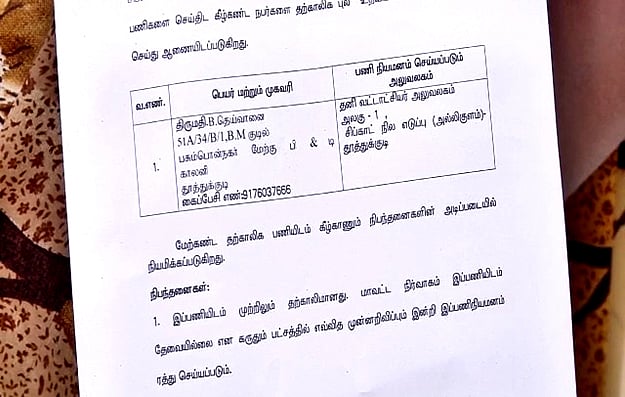 பணிகளை செய்திட கீழ்கண்ட நபர்களை தற்காலிக புல
செய்து ஆணையிடப்படுகிறது.
வ.எண். பெயர் மற்றும் முகவரி பணி நியமனம் செய்யப்படும் அலுவலகம்
1.
திருமதி.B.தெய்வானை
51A/34/B/1,B.M குடில்
பசும்பொன்நகர் மேற்கு பி & டி
காலனி
தூத்துக்குடி
கைப்பேசி எண்:9176037666
தனி வட்டாட்சியர் அலுவலகம்
அலகு - 1 ,
சிப்காட் நில எடுப்பு (அல்லிகுளம்)-
தூத்துக்குடி
மேற்கண்ட தற்காலிக பணியிடம் கீழ்காணும் நிபந்தனைகளின் அடிப்படையில்
நியமிக்கப்படுகிறது.
நிபந்தனைகள்:
1. இப்பணியிடம் முற்றிலும் தற்காலிகமானது. மாவட்ட நிர்வாகம் இப்பணியிடம்
தேவையில்லை என கருதும் பட்சத்தில் எவ்வித முன்னறிவிப்பும் இன்றி இப்பணிநியமனம்
ரத்து செய்யப்படும்.